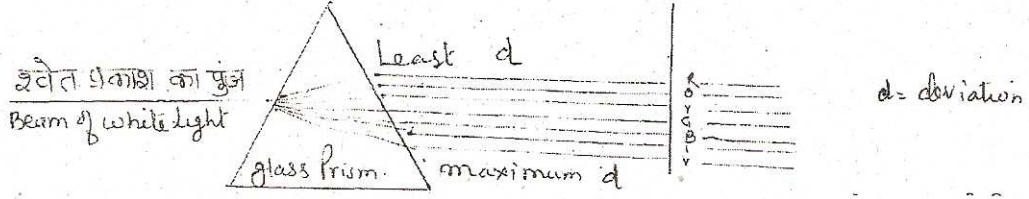 श्वेत प्रकाश का पुंज
Beam of white light
glass Prism.
Least d
maximum d
R
O
Y
G
B
I
V
d= deviation